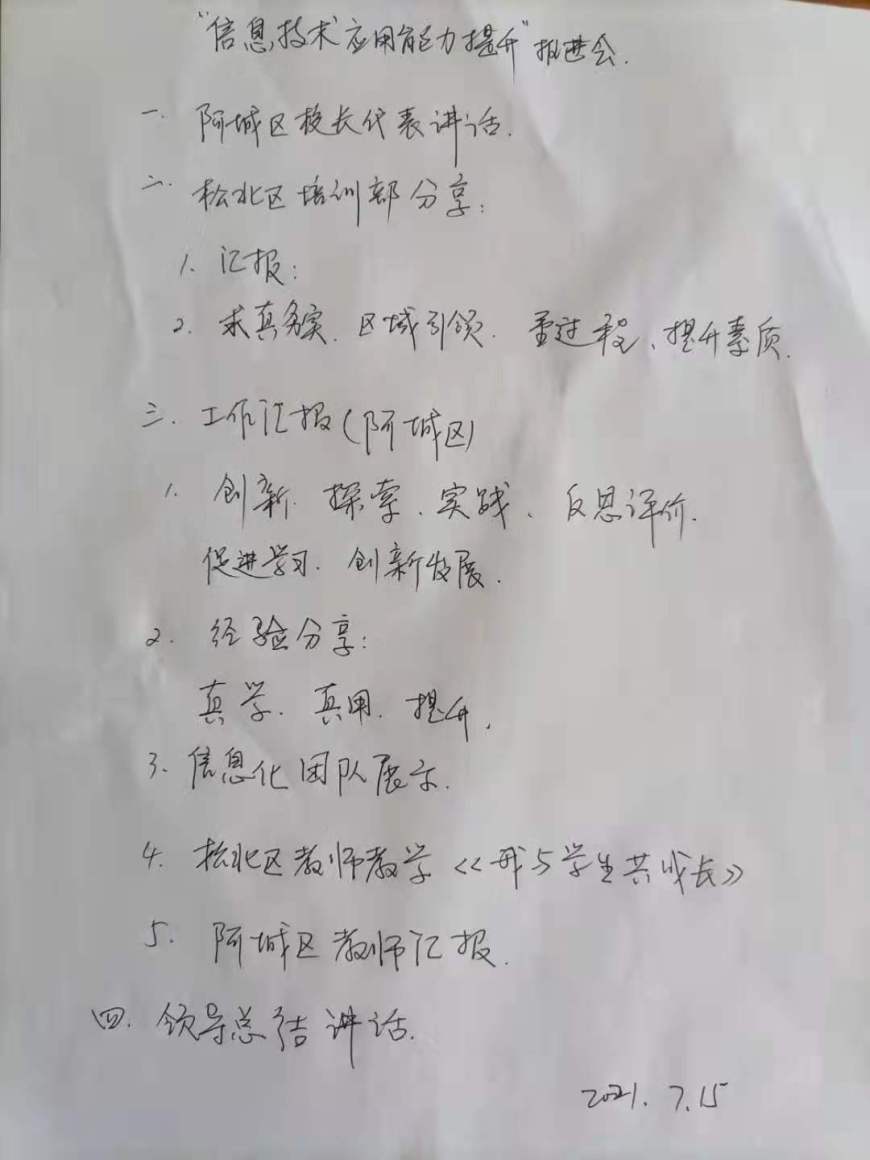 “信息技术应用能力提升”推进会.
一. 阿城区校长代表讲话.
二. 松北区培训部分享:
1. 汇报:
2. 求真务实. 区域引领. 重过程、提升素质.
三. 工作汇报(阿城区)
1. 创新. 探索、实践、反思评价.
促进学习. 创新发展.
2. 经验分享:
真学. 真用. 提升.
3. 信息化团队展示.
4. 松北区教师教学《我与学生共成长》
5. 阿城区教师汇报.
四. 领导总结讲话.
2021. 7.15